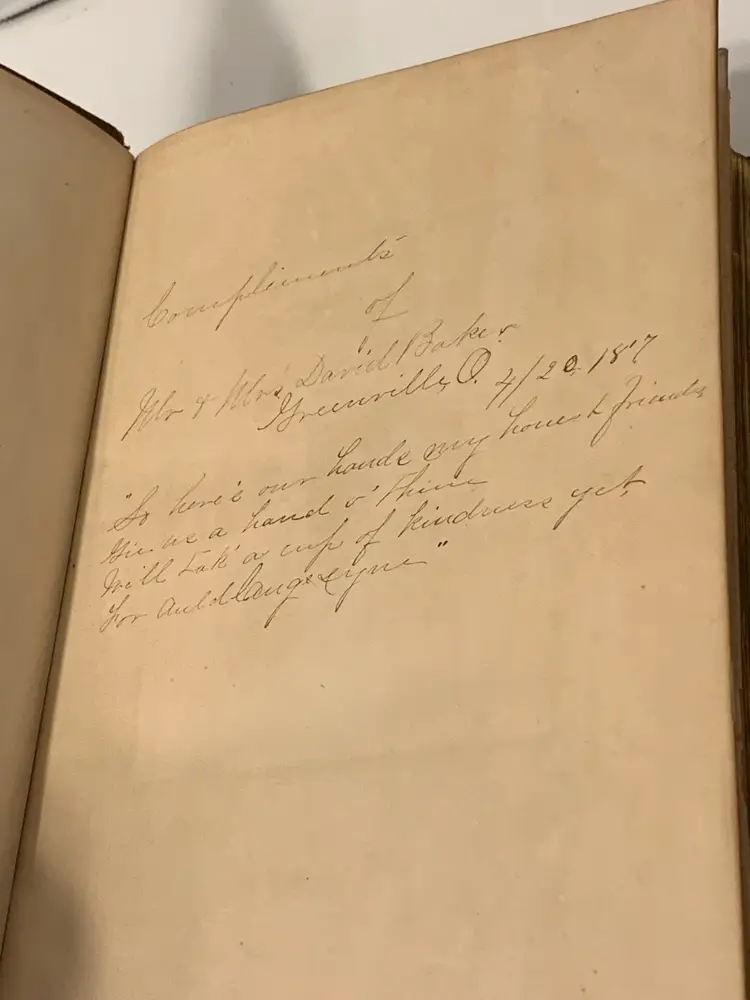 Compliments
of
Mr & Mrs David Baker
Greenville O. 4/20 187
"So here's our hande my honest friends
Gie us a hand o' thine
We'll tak' a cup of kindness yet,
For Auld Lange syne"